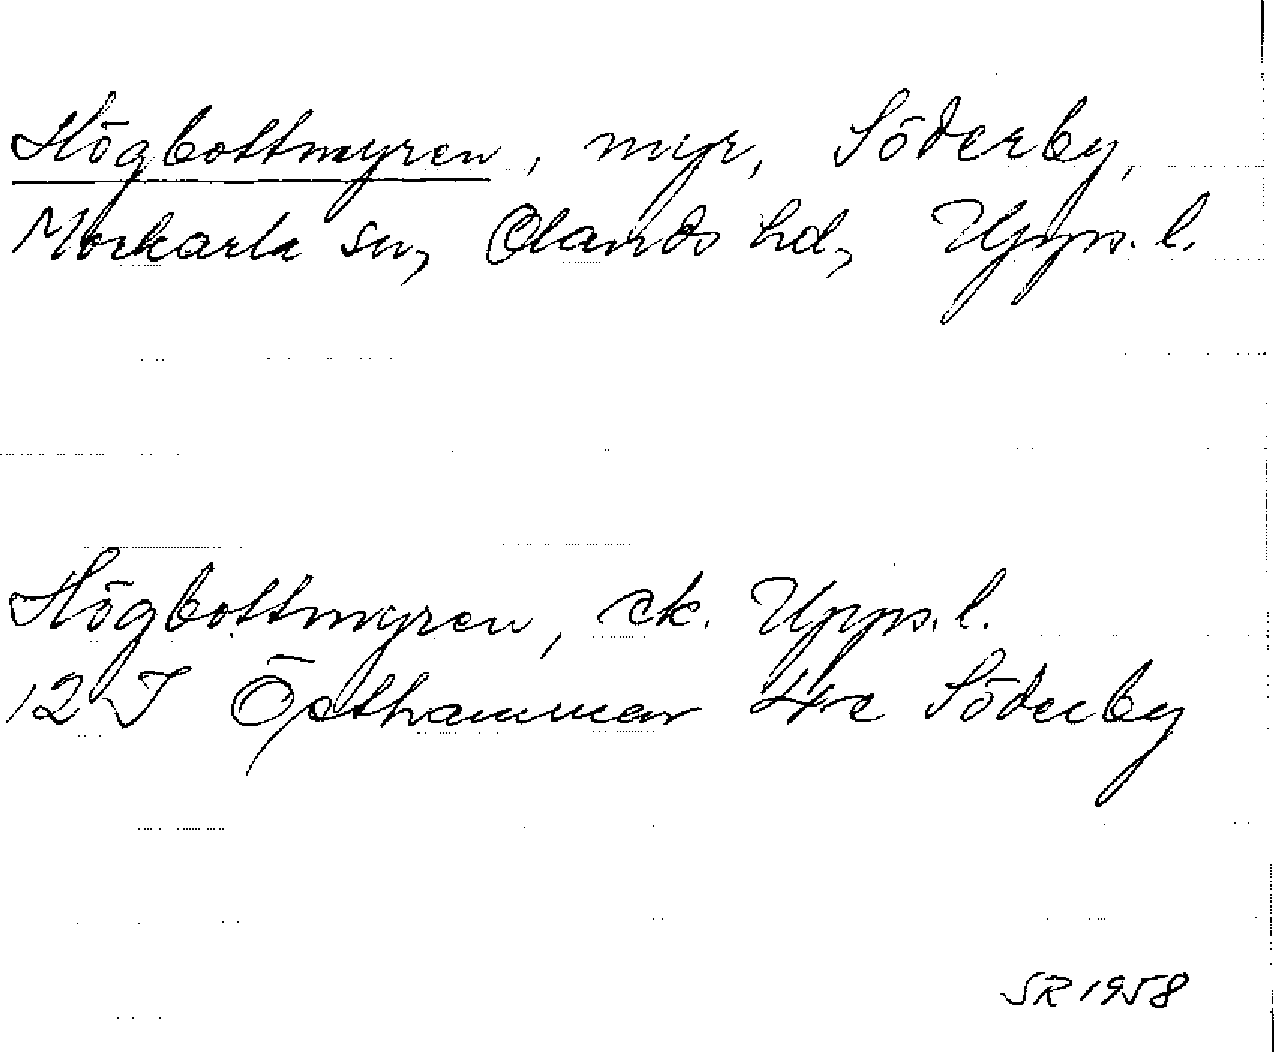 Högbottmyren, myr, Söderby,
Morkarla sn, Olands hd, Upps. l.
Högbottmyren, ek. Upps. l.
12 I Östhammar 4c Söderby
SR 1958